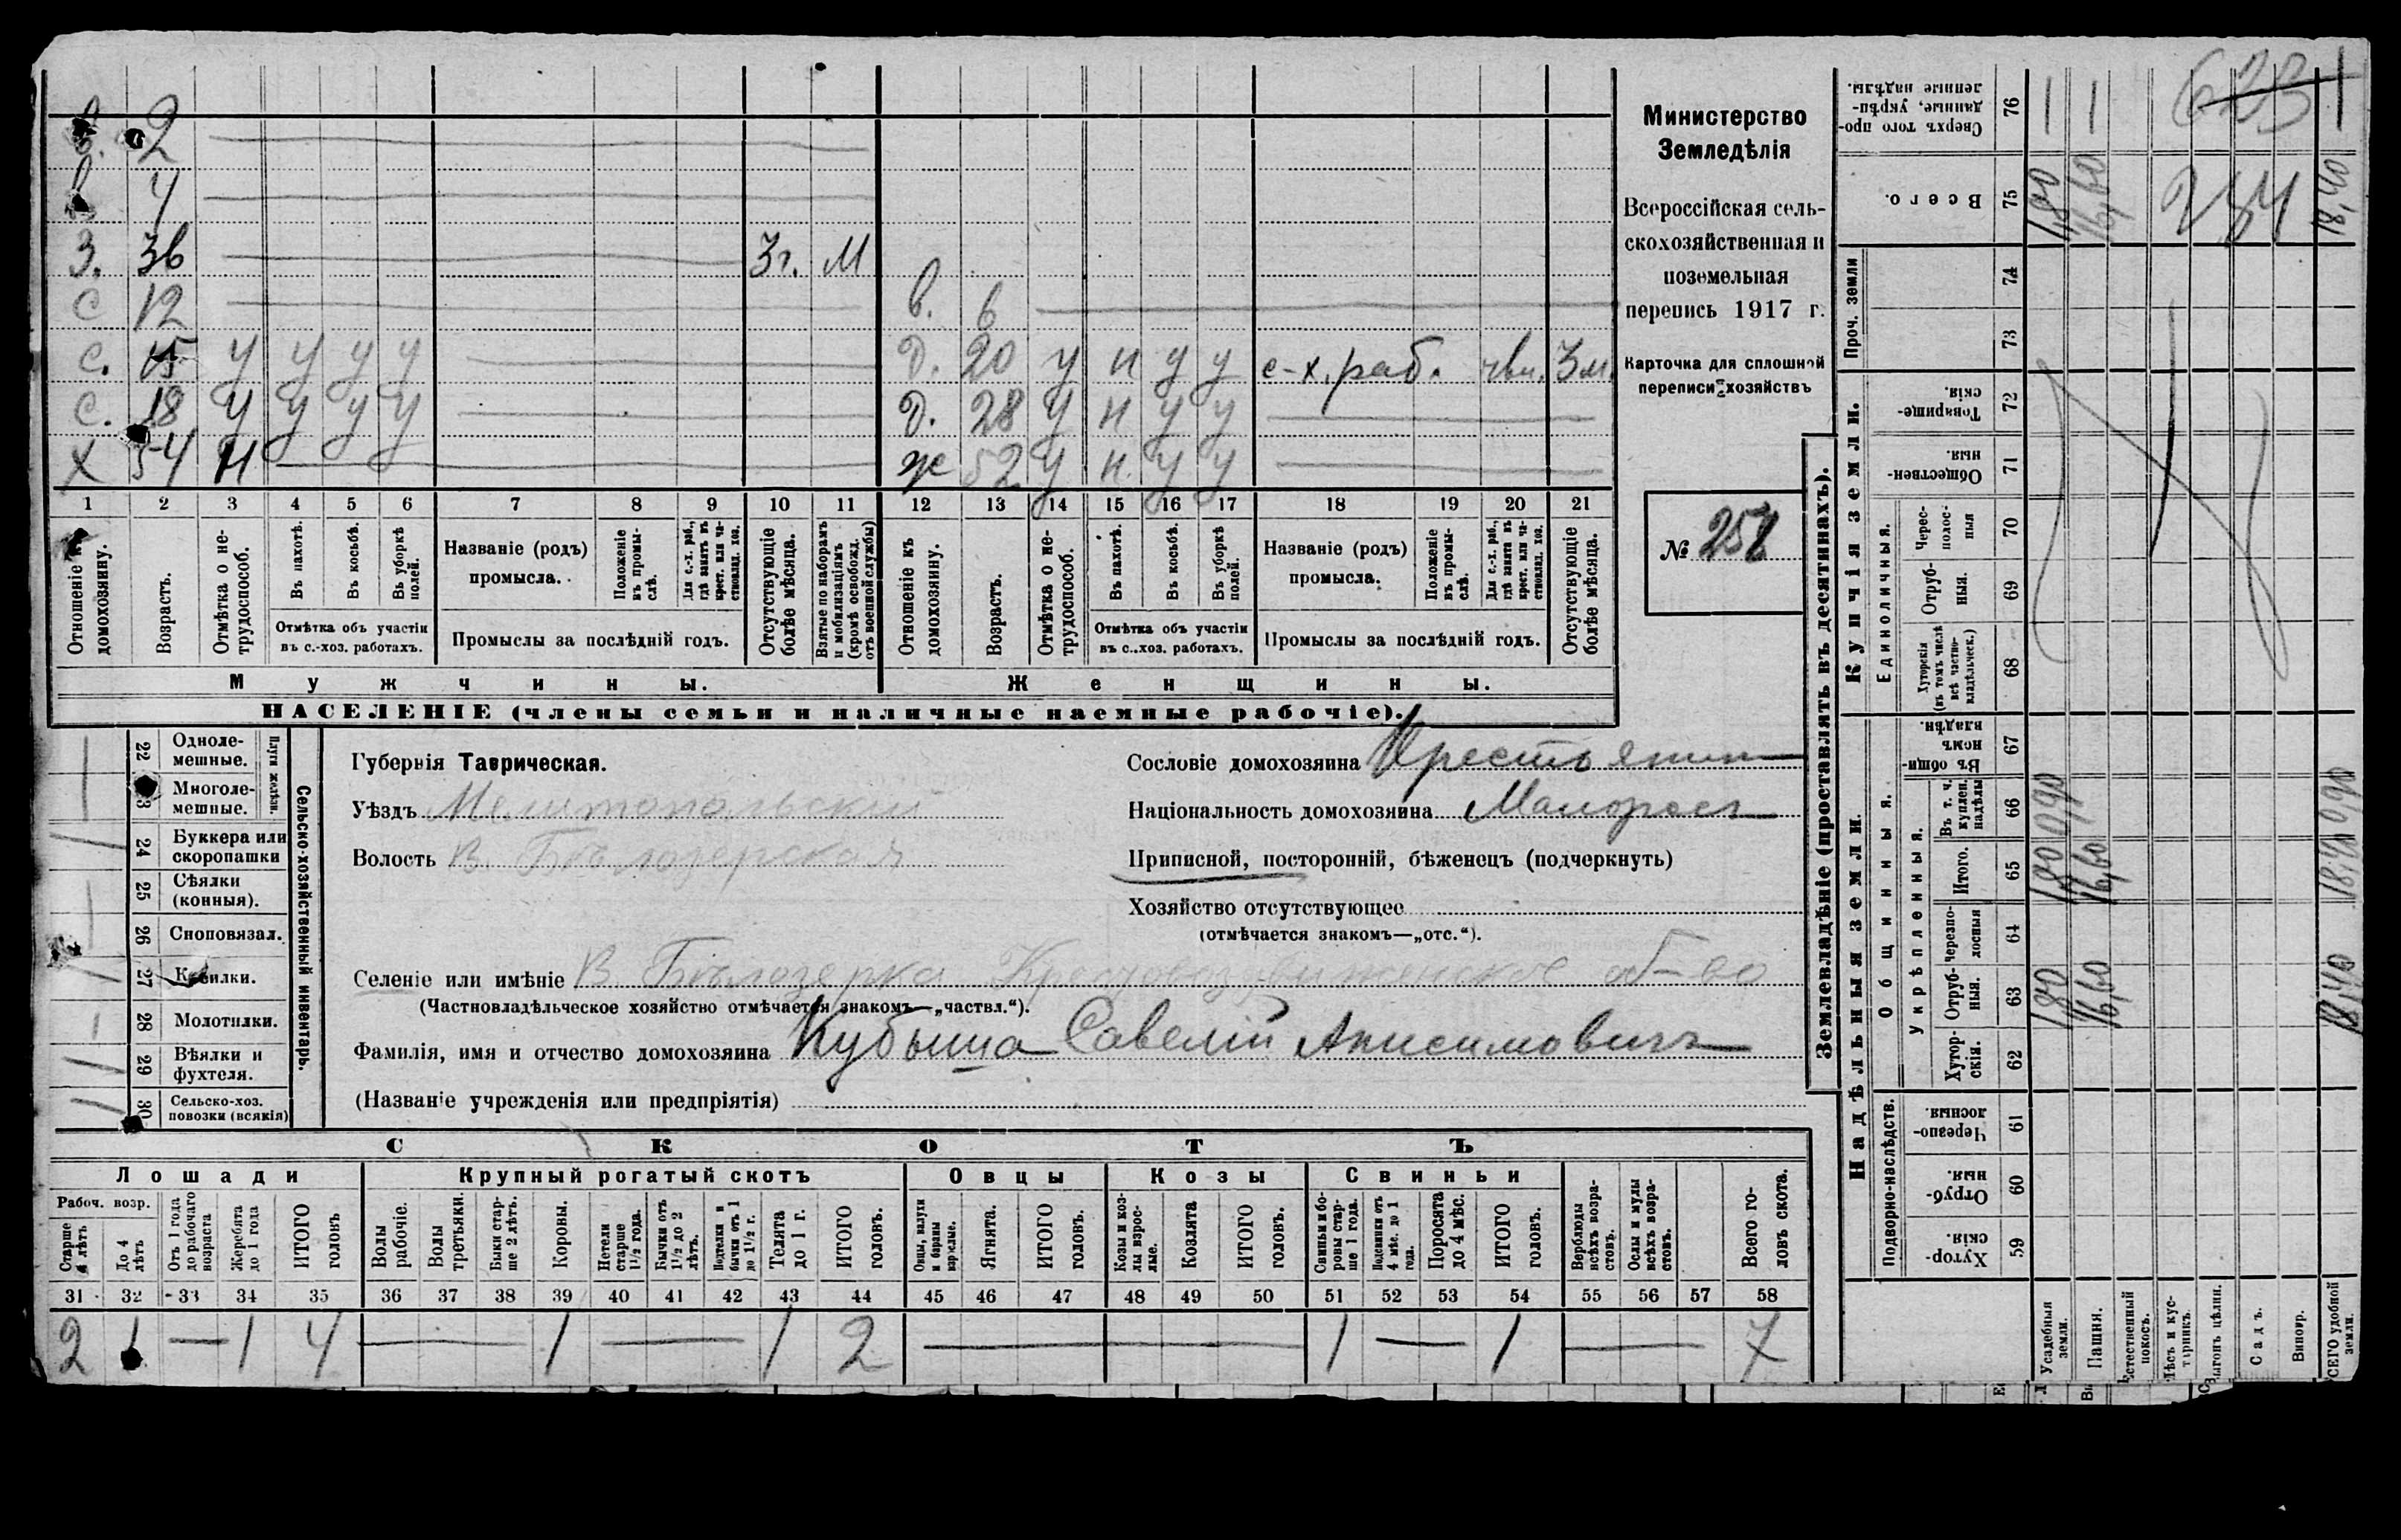 Министерство
Земледѣлія
Всероссійская сель-
скохозяйственная и
поземельная
перепись 1917 г.
Карточка для сплошной
переписи хозяйствъ
№ 258
в. 2
в 4
З. 36 3г. М
С 12 в. 6
С. 15 у у у у Д. 20 у н у у с-х. раб. чвл. 3м.
С. 18 у у у у Д. 28 у н у у
Х 54 Н ж 52 у н. у у
1 2 3 4 5 6 7 8 9 10 11 12 13 14 15 16 17 18 19 20 21
Отношеніе къ домохозяину.
Возрастъ.
Отмѣтка о не-трудоспособ.
Въ пахотѣ.
Въ косьбѣ.
Въ уборкѣ полей.
Отмѣтка объ участіи
въ с.-хоз. работахъ.
Названіе (родъ)
промысла.
Положеніе въ промы-слѣ.
Для с.-х. раб., гдѣ занятъ въ крест. или ча-стновлад. хоз.
Промыслы за послѣдній годъ.
Отсутствующіе болѣе мѣсяца.
Взятые по наборамъ и мобилизаціямъ (кромѣ освобожд. отъ военной службы)
Отношеніе къ домохозяину.
Возрастъ.
Отмѣтка о не-трудоспособ.
Въ пахотѣ.
Въ косьбѣ.
Въ уборкѣ полей.
Отмѣтка объ участіи
въ с..хоз. работахъ.
Названіе (родъ)
промысла.
Положеніе въ промы-слѣ.
Для с.-х. раб., гдѣ занята въ крест. или ча-стновлад. хоз.
Промыслы за послѣдній годъ.
Отсутствующіе болѣе мѣсяца.
Мужчины.
Женщины.
НАСЕЛЕНІЕ (члены семьи и наличные наемные рабочіе).
22 Одноле-мешные.
Плуги желѣзн.
Многоле-мешные.
24 Буккера или скоропашки
25 Сѣялки (конныя).
26 Сноповязал.
27 Косилки.
28 Молотилки.
29 Вѣялки и фухтеля.
30 Сельско-хоз. повозки (всякія)
Сельско-хозяйственный инвентарь.
Губернія Таврическая.
Уѣздъ Мелитопольскій
Волость В. Бѣлозерская
Сословіе домохозяина Крестьянин
Національность домохозяина Малоросъ
Приписной, посторонній, бѣженецъ (подчеркнуть)
Хозяйство отсутствующее
(отмѣчается знакомъ—„отс.“).
Селеніе или имѣніе В Бѣлозерка Крестовоздвиженское об-во
(Частновладѣльческое хозяйство отмѣчается знакомъ—„частвл.“).
Фамилія, имя и отчество домохозяина Кубыша Савелій Анисимовичъ
(Названіе учрежденія или предпріятія)
СКОТЪ
Лошади
Крупный рогатый скотъ
Овцы
Козы
Свиньи
Рабоч. возр.
Старше 4 лѣтъ
До 4 лѣтъ
Отъ 1 года до рабочаго возраста
Жеребята до 1 года
ИТОГО головъ
Волы рабочіе.
Волы третьяки.
Быки стар-ше 2 лѣтъ.
Коровы.
Нетели старше 1½ года.
Бычки отъ 1½ до 2 лѣтъ.
Подтелки и бычки отъ 1 до 1½ г.
Телята до 1 г.
ИТОГО головъ.
Овцы, валухи и бараны взрослые.
Ягнята.
ИТОГО головъ.
Козы и коз-лы взрос-лые.
Козлята
ИТОГО головъ.
Свиньи и бо-ровы стар-ше 1 года.
Подсвинки отъ 4 мѣс. до 1 года.
Поросята до 4 мѣс.
ИТОГО головъ.
Верблюды всѣхъ возра-стовъ.
Ослы и мулы всѣхъ возра-стовъ.
Всего го-ловъ скота.
31 32 33 34 35 36 37 38 39 40 41 42 43 44 45 46 47 48 49 50 51 52 53 54 55 56 57 58
2 1 — 1 4 — 1 — 1 2 — 1 — 1 — 7
Землевладѣніе (проставлять въ десятинахъ).
Надѣльныя земли.
Купчія земли.
Проч. земли
Подворно-наслѣдств.
Общинныя.
Укрѣпленныя.
Единоличныя.
Сверхъ того про-данные, укрѣп-ленные надѣлы. 76
Всего. 75 1,80 16,60 18,40
623
234
74
73
Товарище-скія. 72
Обществен-ныя. 71
Черес-полос-ныя 70
Отруб-ныя. 69
Хуторскія (въ томъ числѣ всѣ частно-владѣльческ.) 68
Въ общи-номъ владѣн. 67
Въ т. ч. куплен. надѣлы 66 0,90 0,90
Итого. 65 1,80 16,60 18,40
черезпо-лосныя 64
Отруб-ныя. 63 1,80 16,60 18,40
Хутор-скія. 62
Черезпо-лосныя. 61
Отруб-ныя. 60
Хутор-скія. 59
Усадебная земли.
Пашня.
Естественный покосъ.
Лѣсъ и кус-тарникъ.
Выгонъ цѣлин.
Садъ.
Виногр.
ВСЕГО удобной земли.